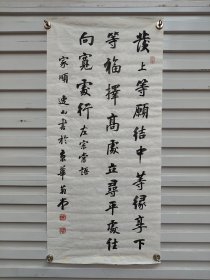 發上等願結中等緣享下
等福擇高處立尋平處住
向寬處行左宗棠語
家順 連山書於京華